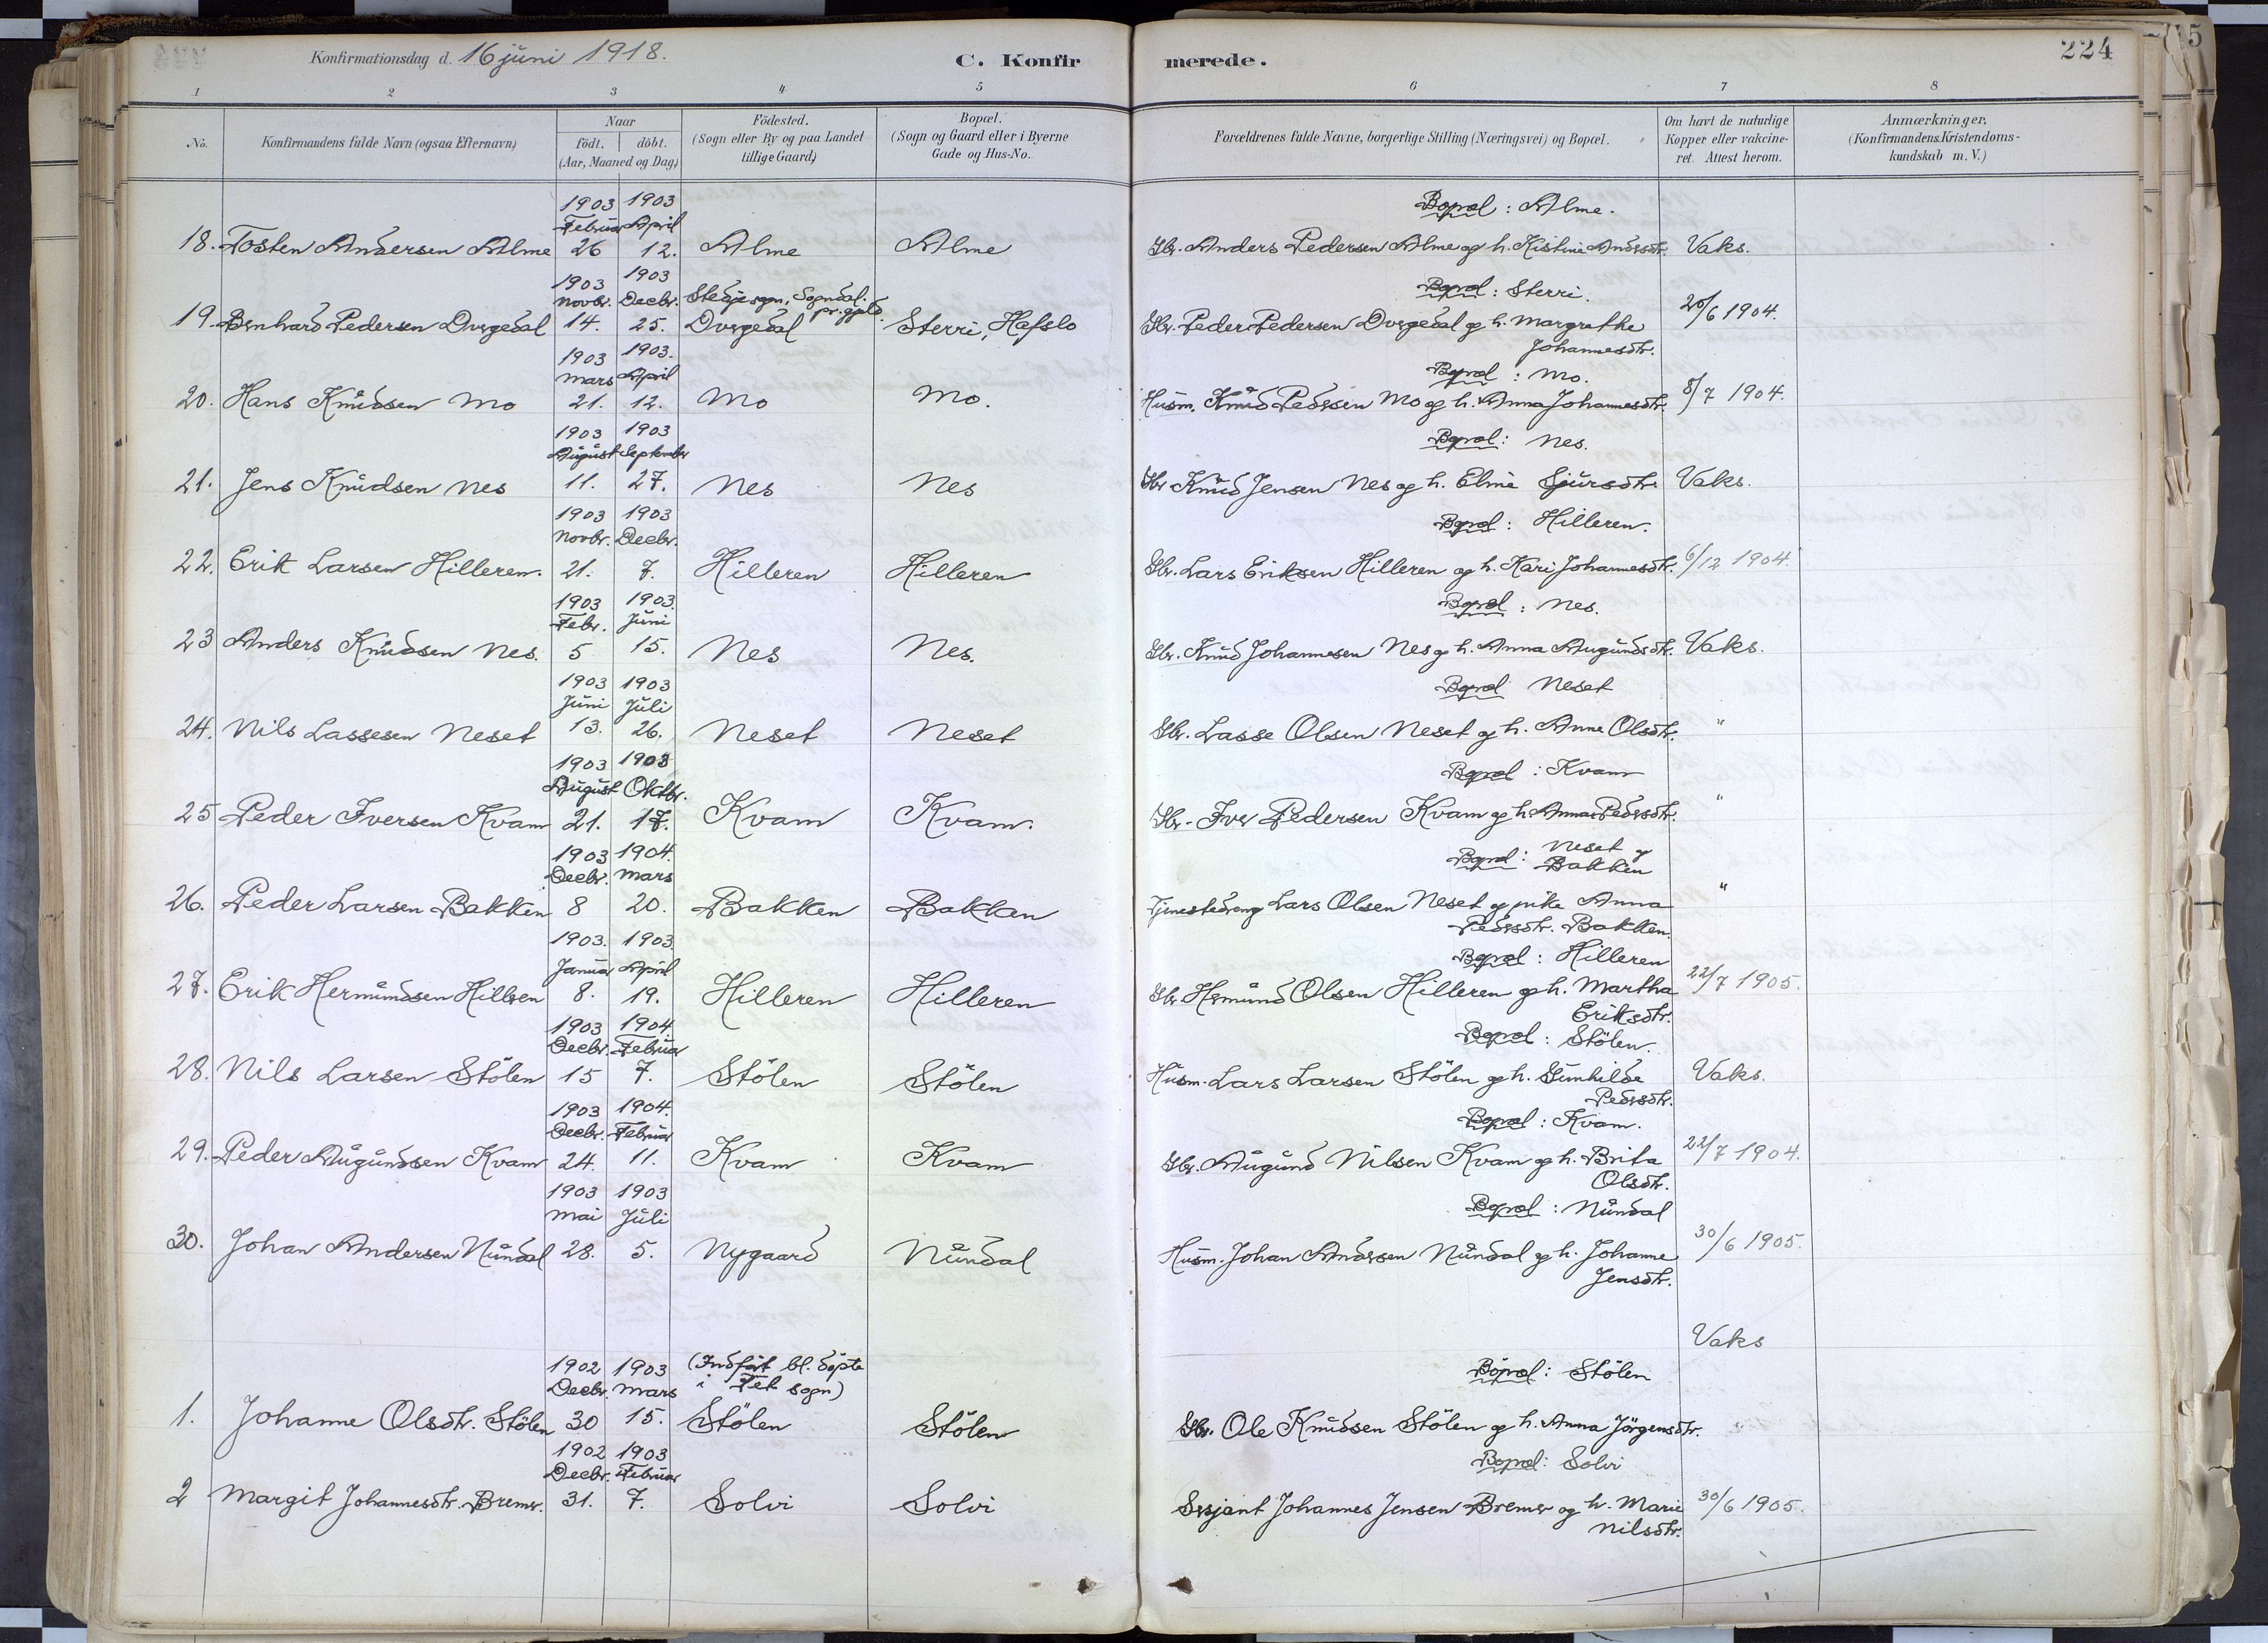 Konfirmationsdag d. 16 juni 1918.
C. Konfirmerede.
224
15
1 2 3 4 5 6 7 8
No.
Konfirmandens fulde Navn (ogsaa Efternavn)
Naar
födt. döbt.
(Aar, Maaned og Dag)
Födested.
(Sogn eller By og paa Landet
tillige Gaard)
Bopæl.
(Sogn og Gaard eller i Byerne
Gade og Hus-No.
Forældrenes fulde Navne, borgerlige Stilling (Næringsvei) og Bopæl.
Om havt de naturlige
Kopper eller vakcine-
ret. Attest herom.
Anmærkninger.
(Konfirmandens Kristendoms-
kundskab m. V.)
1903 1903 Bopæl: Alme.
Februar April
18. Tosten Andersen Alme 26 12. Alme Alme Gbr. Anders Pedersen Alme og h. Kistine Andersdtr. Vaks.
1903 1903 Bopæl: Sterri.
Novbr. Decbr. Stedje sogn, Sogndal pr.gjeld.
19. Bernhard Pedersen Dvergedal 14. 25. Dvergedal Sterri, Hafslo Gbr. Peder Pedersen Dvergedal og h. Margrethe 20/6 1904.
Johannesdtr.
1903 1903. Bopæl: Mo.
Mars April
20. Hans Knudsen Mo 21. 12. Mo Mo. Husm. Knud Pedersen Mo og h. Anna Johannesdtr. 8/7 1904.
1903 1903 Bopæl: Nes.
August September
21. Jens Knudsen Nes 11. 27. Nes Nes Gbr Knud Jensen Nes og h. Eline Sjursdtr. Vaks.
1903 1903 Bopæl: Hilleren.
Novbr. Decbr.
22. Erik Larsen Hilleren. 21. 7. Hilleren Hilleren Gbr. Lars Eriksen Hilleren og h. Kari Johannesdtr. 6/12 1904.
1903 1903. Bopæl: Nes.
Febr. Juni
23 Anders Knudsen Nes. 5 15. Nes Nes. Gbr. Knud Johannesen Nes og h. Anna Augundsdtr. Vaks.
1903 1903 Bopæl Neset
Juni Juli
24. Nils Lassesen Neset 13. 26. Neset Neset Gbr. Lasse Olsen Neset og h. Anne Olsdtr. "
1903 1903 Bopæl: Kvam
August Oktbr.
25 Peder Iversen Kvam 21. 17. Kvam Kvam. Gbr. Iver Pedersen Kvam og h. Anna Pedersdtr. "
1903 1904. Bopæl: Neset og
Decbr. Mars Bakken
26. Peder Larsen Bakken 8 20. Bakken Bakken Tjenestedreng Lars Olsen Neset og pike Anna "
Pedersdtr. Bakken.
1903. 1903. Bopæl: Hilleren
Januar April
27. Erik Hermundsen Hilleren 8. 19. Hilleren Hilleren Gbr Hermund Olsen Hilleren og h. Martha 22/7 1905.
Eriksdtr.
1903 1904. Bopæl: Stölen.
Decbr. Februar
28. Nils Larsen Stölen 15 7. Stölen Stölen Husm. Lars Larsen Stölen og h. Gunhilde Vaks.
Pedersdtr.
1903 1904. Bopæl: Kvam.
Decbr. Februar
29. Peder Augundsen Kvam 24. 11. Kvam Kvam Gbr. Augund Nilsen Kvam og h. Brita 22/7 1904.
Olsdtr.
1903 1903 Bopæl: Nundal
Mai Juli
30. Johan Andersen Nundal 28. 5. Nygaard Nundal Husm. Johan Andersen Nundal og h. Johanne 30/6 1905.
Jensdtr.
Vaks
1902 1903 (Indført bl. døpte Bopæl: Stölen
Decbr. Mars i Fet sogn)
1. Johanne Olsdtr. Stölen 30 15. Stölen Stölen Gbr. Ole Knudsen Stölen og h. Anna Jörgensdtr. "
1902 1903 Bopæl: Solvi
Decbr. Februar
2 Margit Johannesdtr. Bremer. 31. 7. Solvi Solvi Sersjant Johannes Jensen Bremer og h. Marie 30/6 1905.
Nilsdtr.